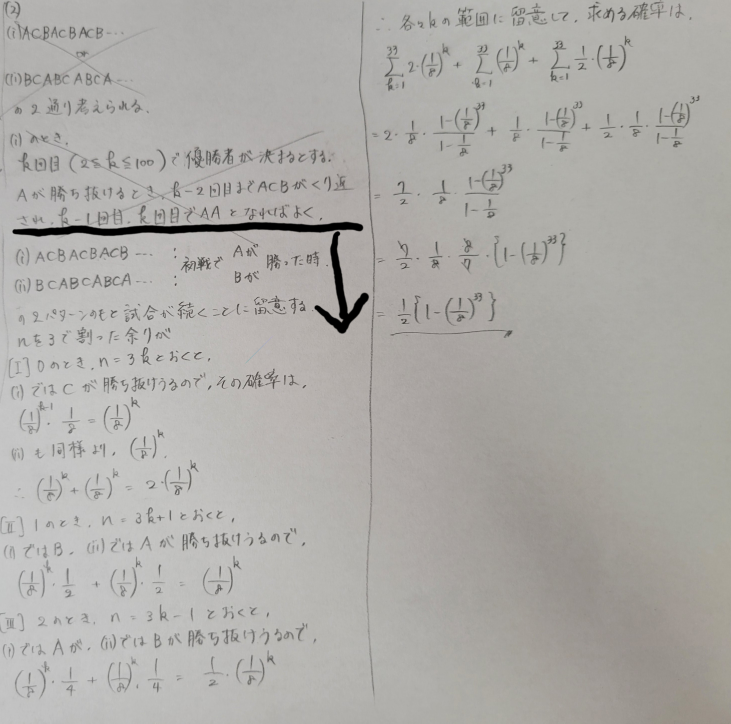 (2)
(i) ACBACBACB…
or
(ii) BCABCABCA…
の2通り考えられる.
(i) のとき,
k回目 (2≦k≦100) で優勝者が決まるとする.
Aが勝ち抜けるとき, k-2回目までACBがくり返
され, k-1回目, k回目でAAとなればよく,
(i) ACBACBACB… : 初戦で Aが 勝った時.
(ii) BCABCABCA… : Bが
の2パターンのもと試合が続くことに留意する.
nを3で割った余りが
[I] 0のとき, n=3kとおくと,
(i) ではCが勝ち抜けうるので, その確率は,
(1/8)^{k-1}・1/8 = (1/8)^k
(ii) も同様より, (1/8)^k.
∴ (1/8)^k + (1/8)^k = 2・(1/8)^k
[II] 1のとき, n=3k+1とおくと,
(i) ではB, (ii) ではAが勝ち抜けうるので,
(1/8)^k・1/2 + (1/8)^k・1/2 = (1/8)^k
[III] 2のとき, n=3k-1とおくと,
(i) ではAが, (ii) ではBが勝ち抜けうるので,
(1/8)^k・1/4 + (1/8)^k・1/4 = 1/2・(1/8)^k
∴ 各々kの範囲に留意して, 求める確率は,
Σ_{k=1}^{33} 2・(1/8)^k + Σ_{k=1}^{33} (1/8)^k + Σ_{k=1}^{33} 1/2・(1/8)^k
= 2・1/8・(1-(1/8)^{33})/(1-1/8) + 1/8・(1-(1/8)^{33})/(1-1/8) + 1/2・1/8・(1-(1/8)^{33})/(1-1/8)
= 7/2・1/8・(1-(1/8)^{33})/(1-1/8)
= 7/2・1/8・8/7・{1-(1/8)^{33}}
= 1/2{1-(1/8)^{33}}